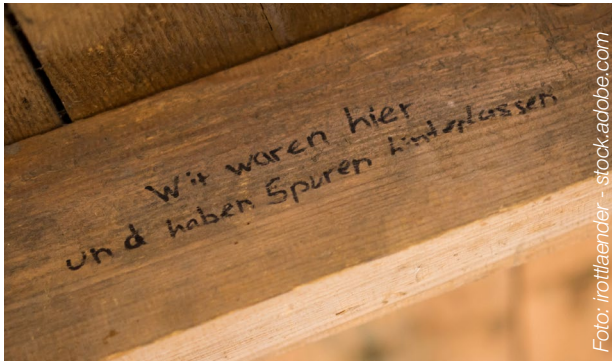 Wir waren hier
und haben Spuren hinterlassen
Foto: irottlaender - stock.adobe.com